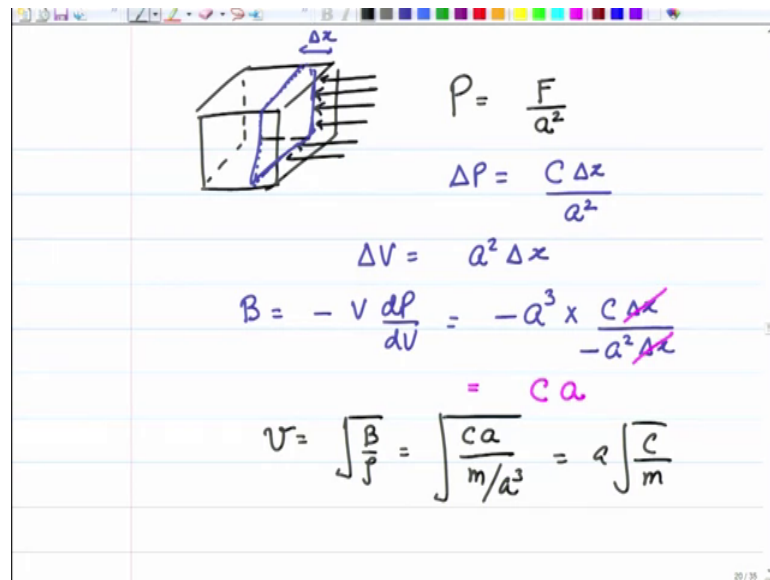 Δx
P = F/a²
ΔP = C Δx/a²
ΔV = a² Δx
B = − V dP/dV = −a³ × C Δx/−a² Δx
= C a
v = √(B/ρ) = √(Ca/m/a³) = a √(C/m)
20 / 35